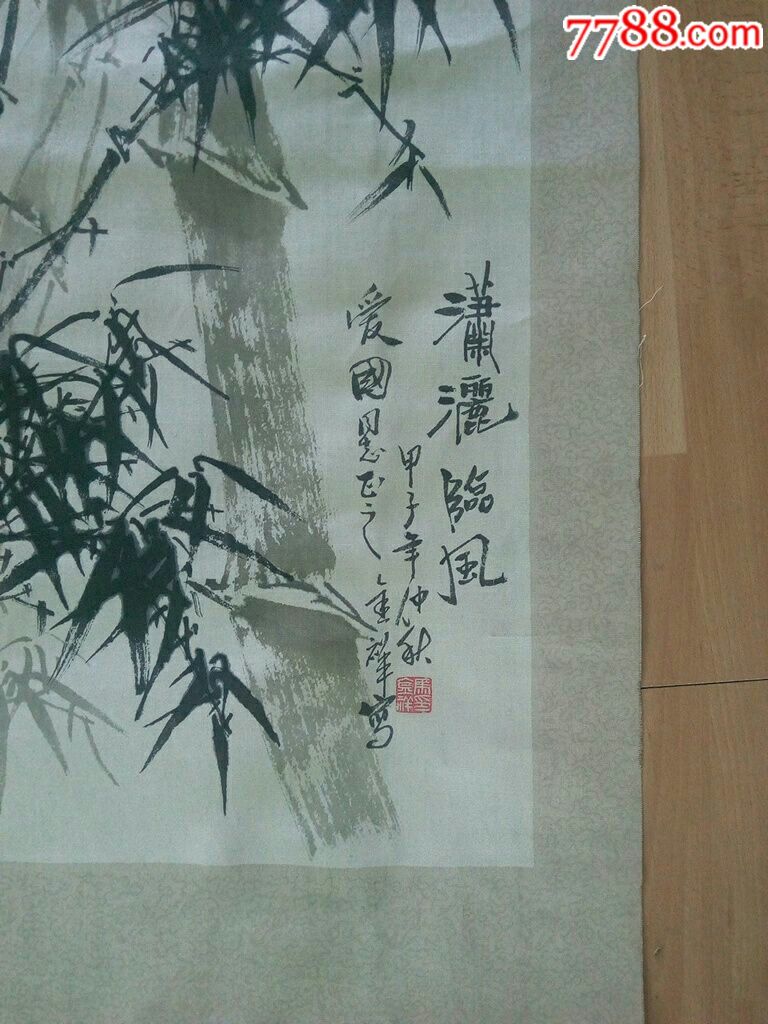 7788.com
瀟灑臨風
甲子年仲秋
爱國同志正之 金祥寫